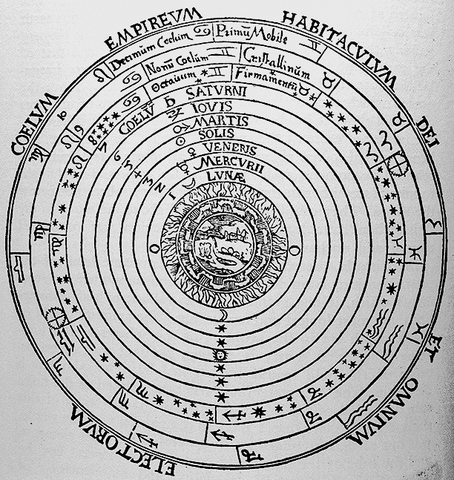 COELUM EMPIREVM HABITACVLVM DEI ET OMNIVM ELECTORVM
Decimum Coelum Primū Mobile
Nonū Coelum Cristallinum
Octauum Firmamentū
COELV SATVRNI
IOVIS
MARTIS
SOLIS
VENERIS
MERCVRII
LVNÆ
7 6 5 4 3 2 1